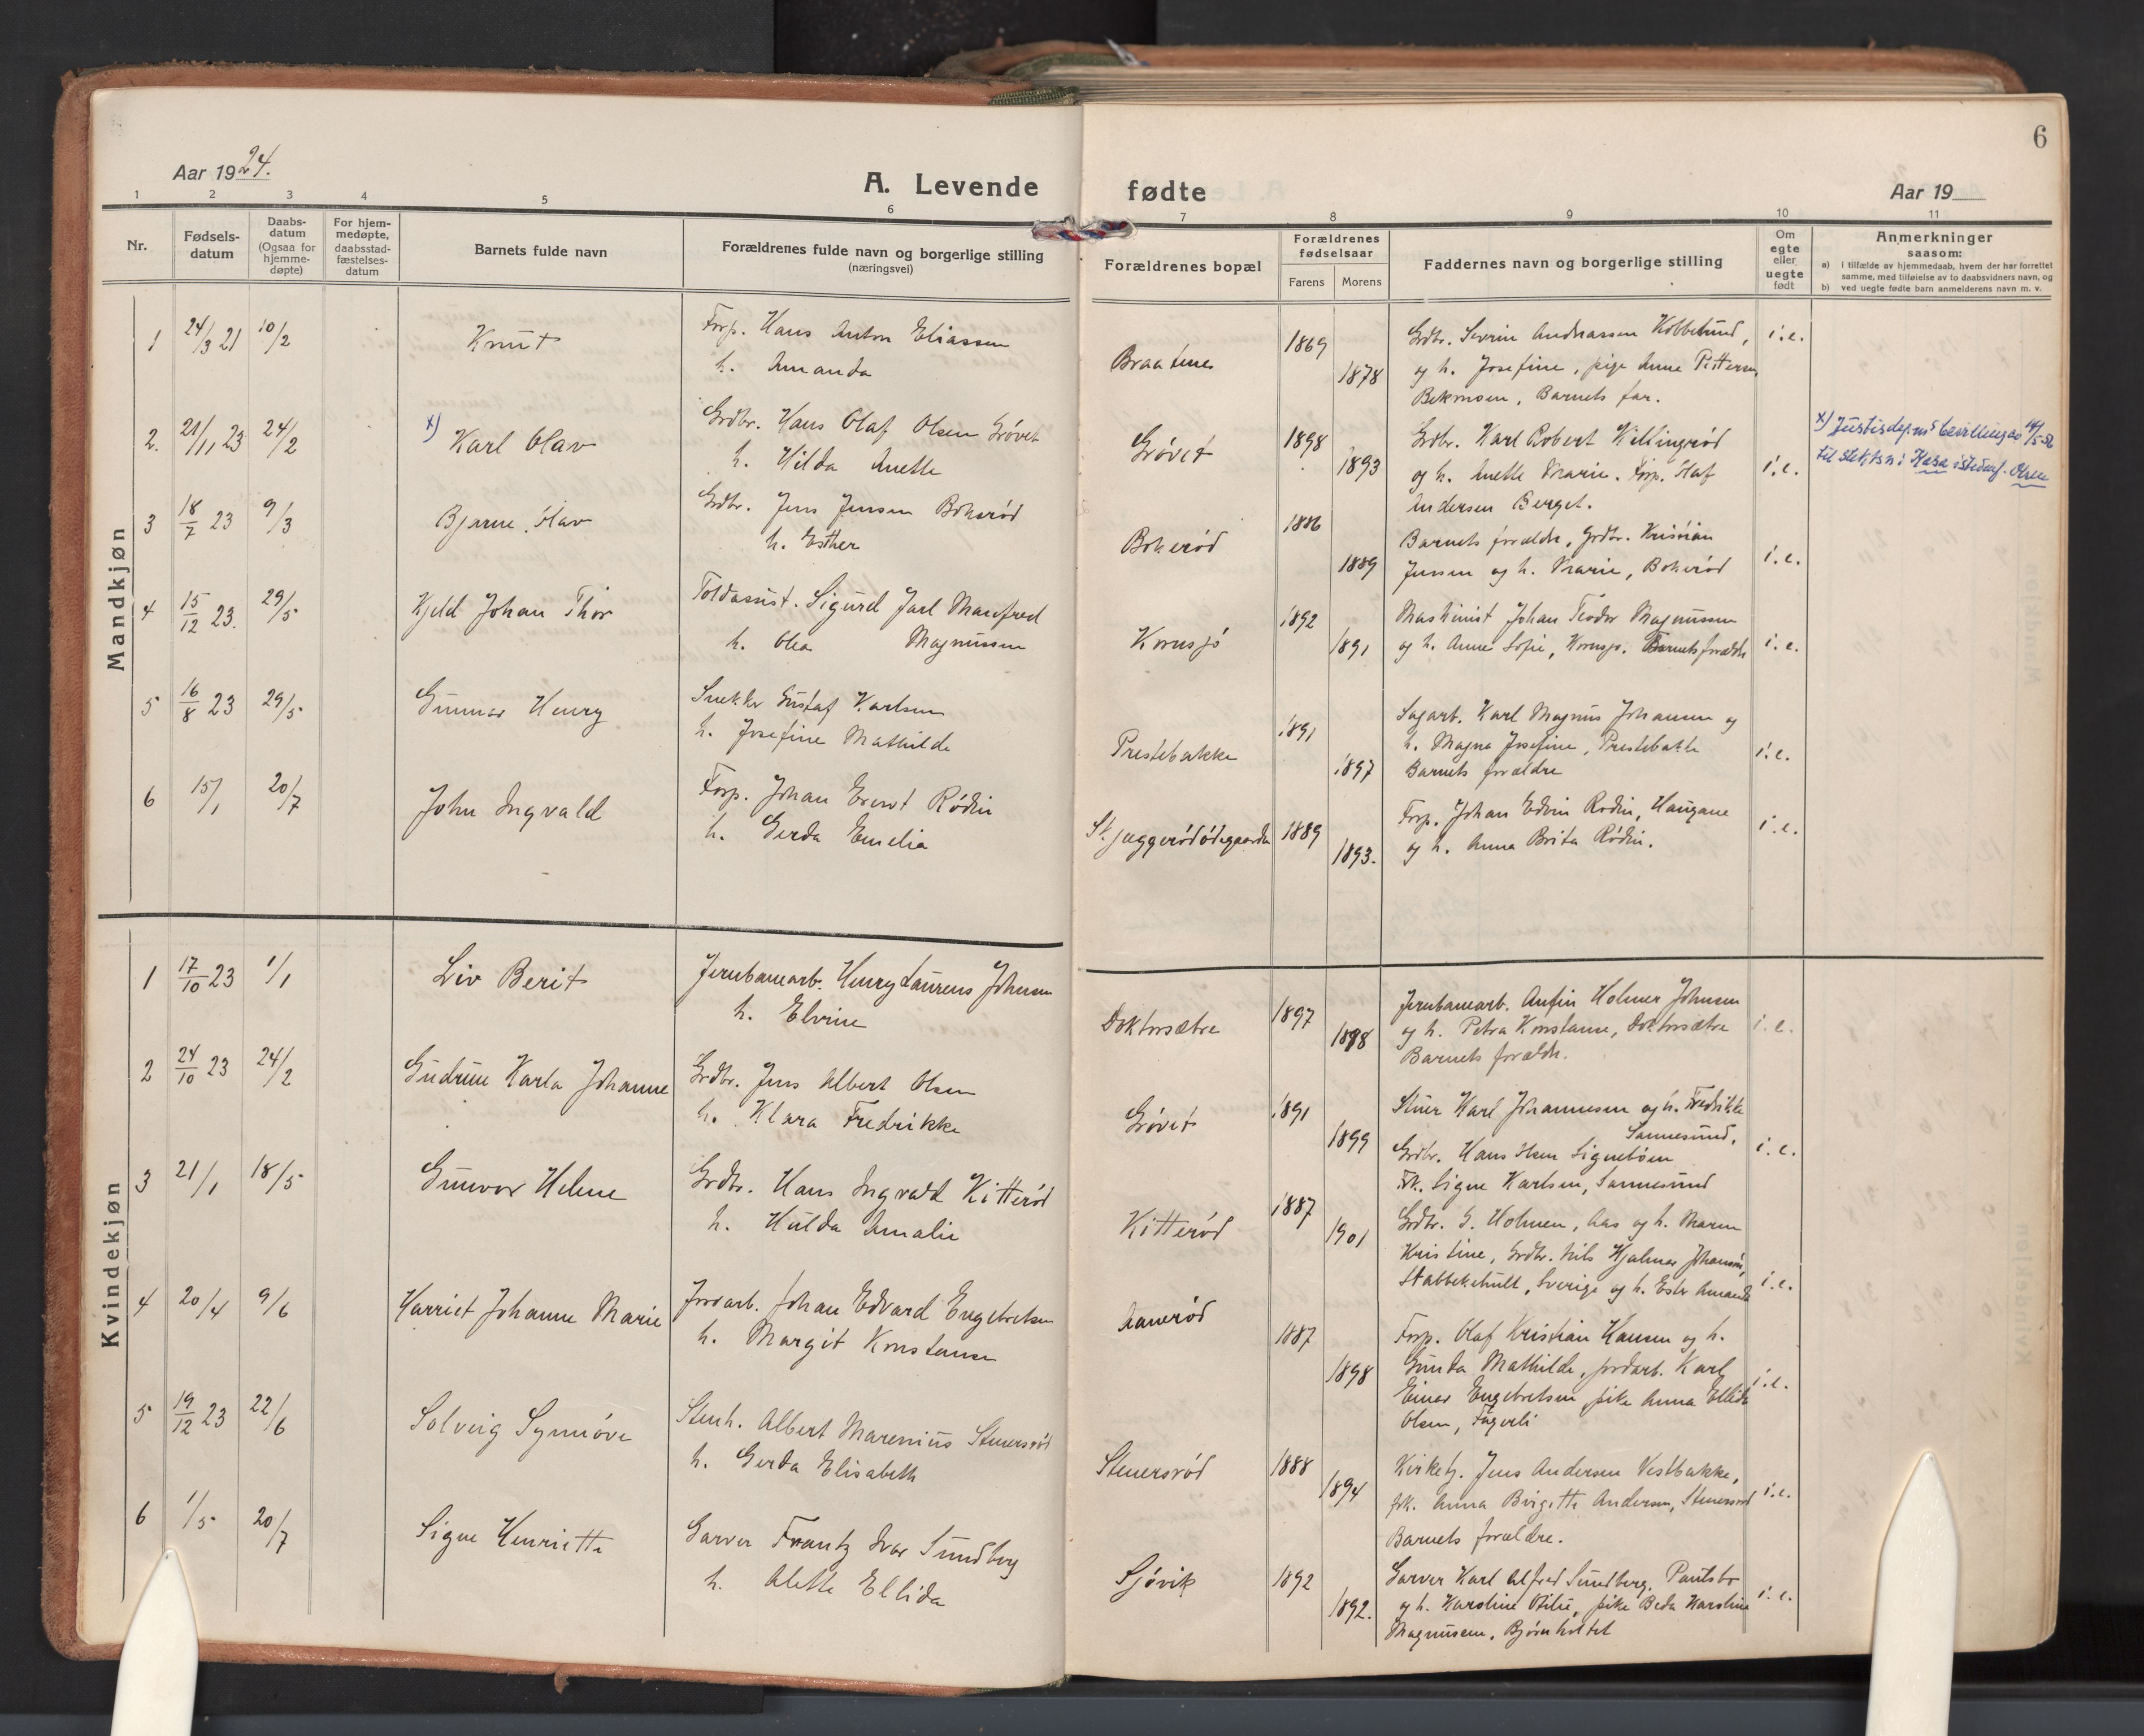 6
Aar 1924.
A. Levende fødte
Aar 19
1 2 3 4 5 6 7 8 9 10 11
Nr.
Fødsels-
datum
Daabs-
datum
(Ogsaa for
hjemme-
døpte)
For hjem-
medøpte,
daabsstad-
fæstelses-
datum
Barnets fulde navn
Forældrenes fulde navn og borgerlige stilling
(næringsvei)
Forældrenes bopæl
Forældrenes
fødselsaar
Farens Morens
Faddernes navn og borgerlige stilling
Om
egte
eller
uegte
født
Anmerkninger
saasom:
a) i tilfælde av hjemmedaab, hvem der har forrettet
samme, med tilføielse av to daabsvidners navn, og
b) ved uegte fødte barn anmelderens navn m. v.
Mandkjøn
1 24/3 21 10/2 Knut
Forp. Hans Anton Eliassen
h. Amanda
Braatene 1869 1878
Grdbr. Severin Andreassen Kobbelund,
og h. Josefine, pige Anne Pettersen,
Bekmoen, Barnets far.
i.e.
2. 21/11 23 24/2 x) Karl Olav
Grdbr. Hans Olaf Olsen Grøvet
h. Hilda Anette
Grøvet 1898 1893
Grdbr. Karl Robert Killingrød
og h. Anette Marie. Forp. Olaf
Andersen Berget.
i.e.
x) Justisdep.ns bevilling av
til slektsn: Kasa istedenf. Olsen
3 18/7 23 9/3 Bjarne Olav
Grdbr. Jens Jensen Bokerød
h. Esther
Bokerød 1886 1889
Barnets forældre, Grdbr. Kristian
Jensen og h. Marie, Bokerød
i.e.
4 15/12 23. 29/5 Kjeld Johan Thor
Toldassist. Sigurd Jarl Manfred
h. Olea Magnussen
Kornsjø 1892 1891
Maskinist Johan Teodor Magnussen
og h. Anne Sofie, Kornsjø. Barnets forældre
i.e.
5 16/8 23 29/5 Gunnar Henry
Snekker Gustaf Karlsen
h. Josefine Mathilde
Prestebakke 1891 1897
Sagarb. Karl Magnus Johansen og
h. Magna Josefine, Prestebakke
Barnets forældre
i.e.
6 15/1 20/7 John Ingvald
Forp. Johan Ernst Rødin
h. Gerda Emelia
St. Jaggerødødegaarden 1889 1893.
Forp. Johan Edvin Rodin, Haugane
og h. Anna Brita Rødin.
i.e.
Kvindekjøn
1 17/10 23 1/1 Liv Berit
Jernbanearb. Henry Laurens Johnsen
h. Elvine
Doktorsætre 1897 1898
Jernbanearb. Anfin Holmer Johnsen
og h. Petra Konstanse, Doktorsætre
Barnets forældre.
i.e.
2 24/10 23 24/2 Gudrun Karla Johanne
Grdbr. Jens Albert Olsen
h. Klara Fredrikke
Grøvet 1891 1899
Stuer Karl Johannesen og h. Fredrikke
Sannesund,
Grdbr. Hans Olsen Signebøen
Frk. Signe Karlsen, Sannesund
i.e.
3 21/1 18/5 Gunvor Helene
Grdbr. Hans Ingvald Kitterød
h. Hulda Amalie
Kitterød 1887 1901
Grdbr. G. Holmen, Aas og h. Maren
Kristine, Grdbr. Nils Hjalmar Johansen,
Stabbekehult, Sverige og h. Ester Amanda
i.e.
4 20/4 9/6 Harriet Johanne Marie
Jordarb. Johan Edvard Engebretsen
h. Margit Konstanse
Aanerød 1887 1898
Forp. Olaf Kristian Hansen og h.
Gunda Mathilde, jordarb. Karl
Einar Engebretsen pike Anna Ellida
Olsen, Fagerli
i.e.
5 19/12 23 22/6 Solveig Synnøve
Stenh. Albert Marenius Stenersrød
h. Gerda Elisabeth
Stenersrød 1888 1894
Kirketj. Jens Andersen Vestbakke,
frk. Anna Birgitte Andersen, Stenersrød
Barnets forældre.
i.e.
6 1/5 20/7 Signe Henriette
Garver Frantz Ivar Sundberg
h. Alette Ellida
Sjøvik 1892 1892.
Garver Karl Alfred Sundberg, Paulsbo
og h. Karoline Otilie, pike Beda Karoline
Magnussen, Bjørnholtet
i.e.